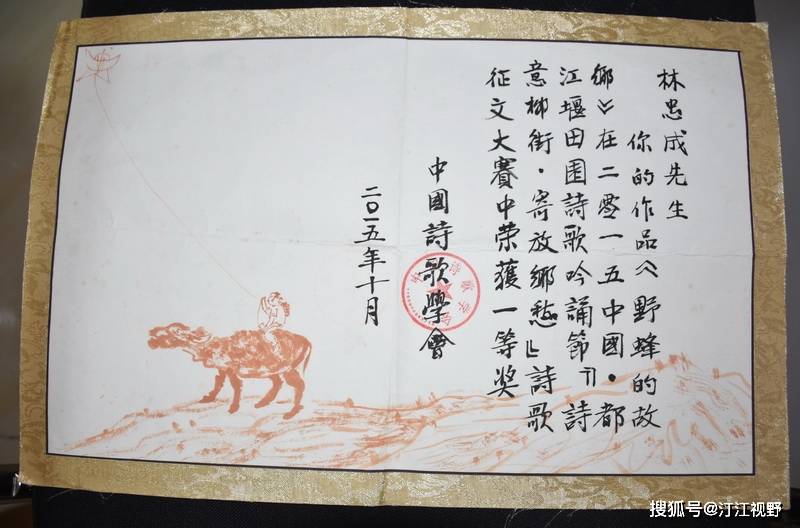 林忠成先生
你的作品《野蜂的故
鄉》在二零一五中國·都
江堰田園詩歌吟誦節「詩
意柳街·寄放鄉愁」詩歌
征文大賽中荣獲一等奖
中國詩歌學會
二〇一五年十月
搜狐号@汀江视野